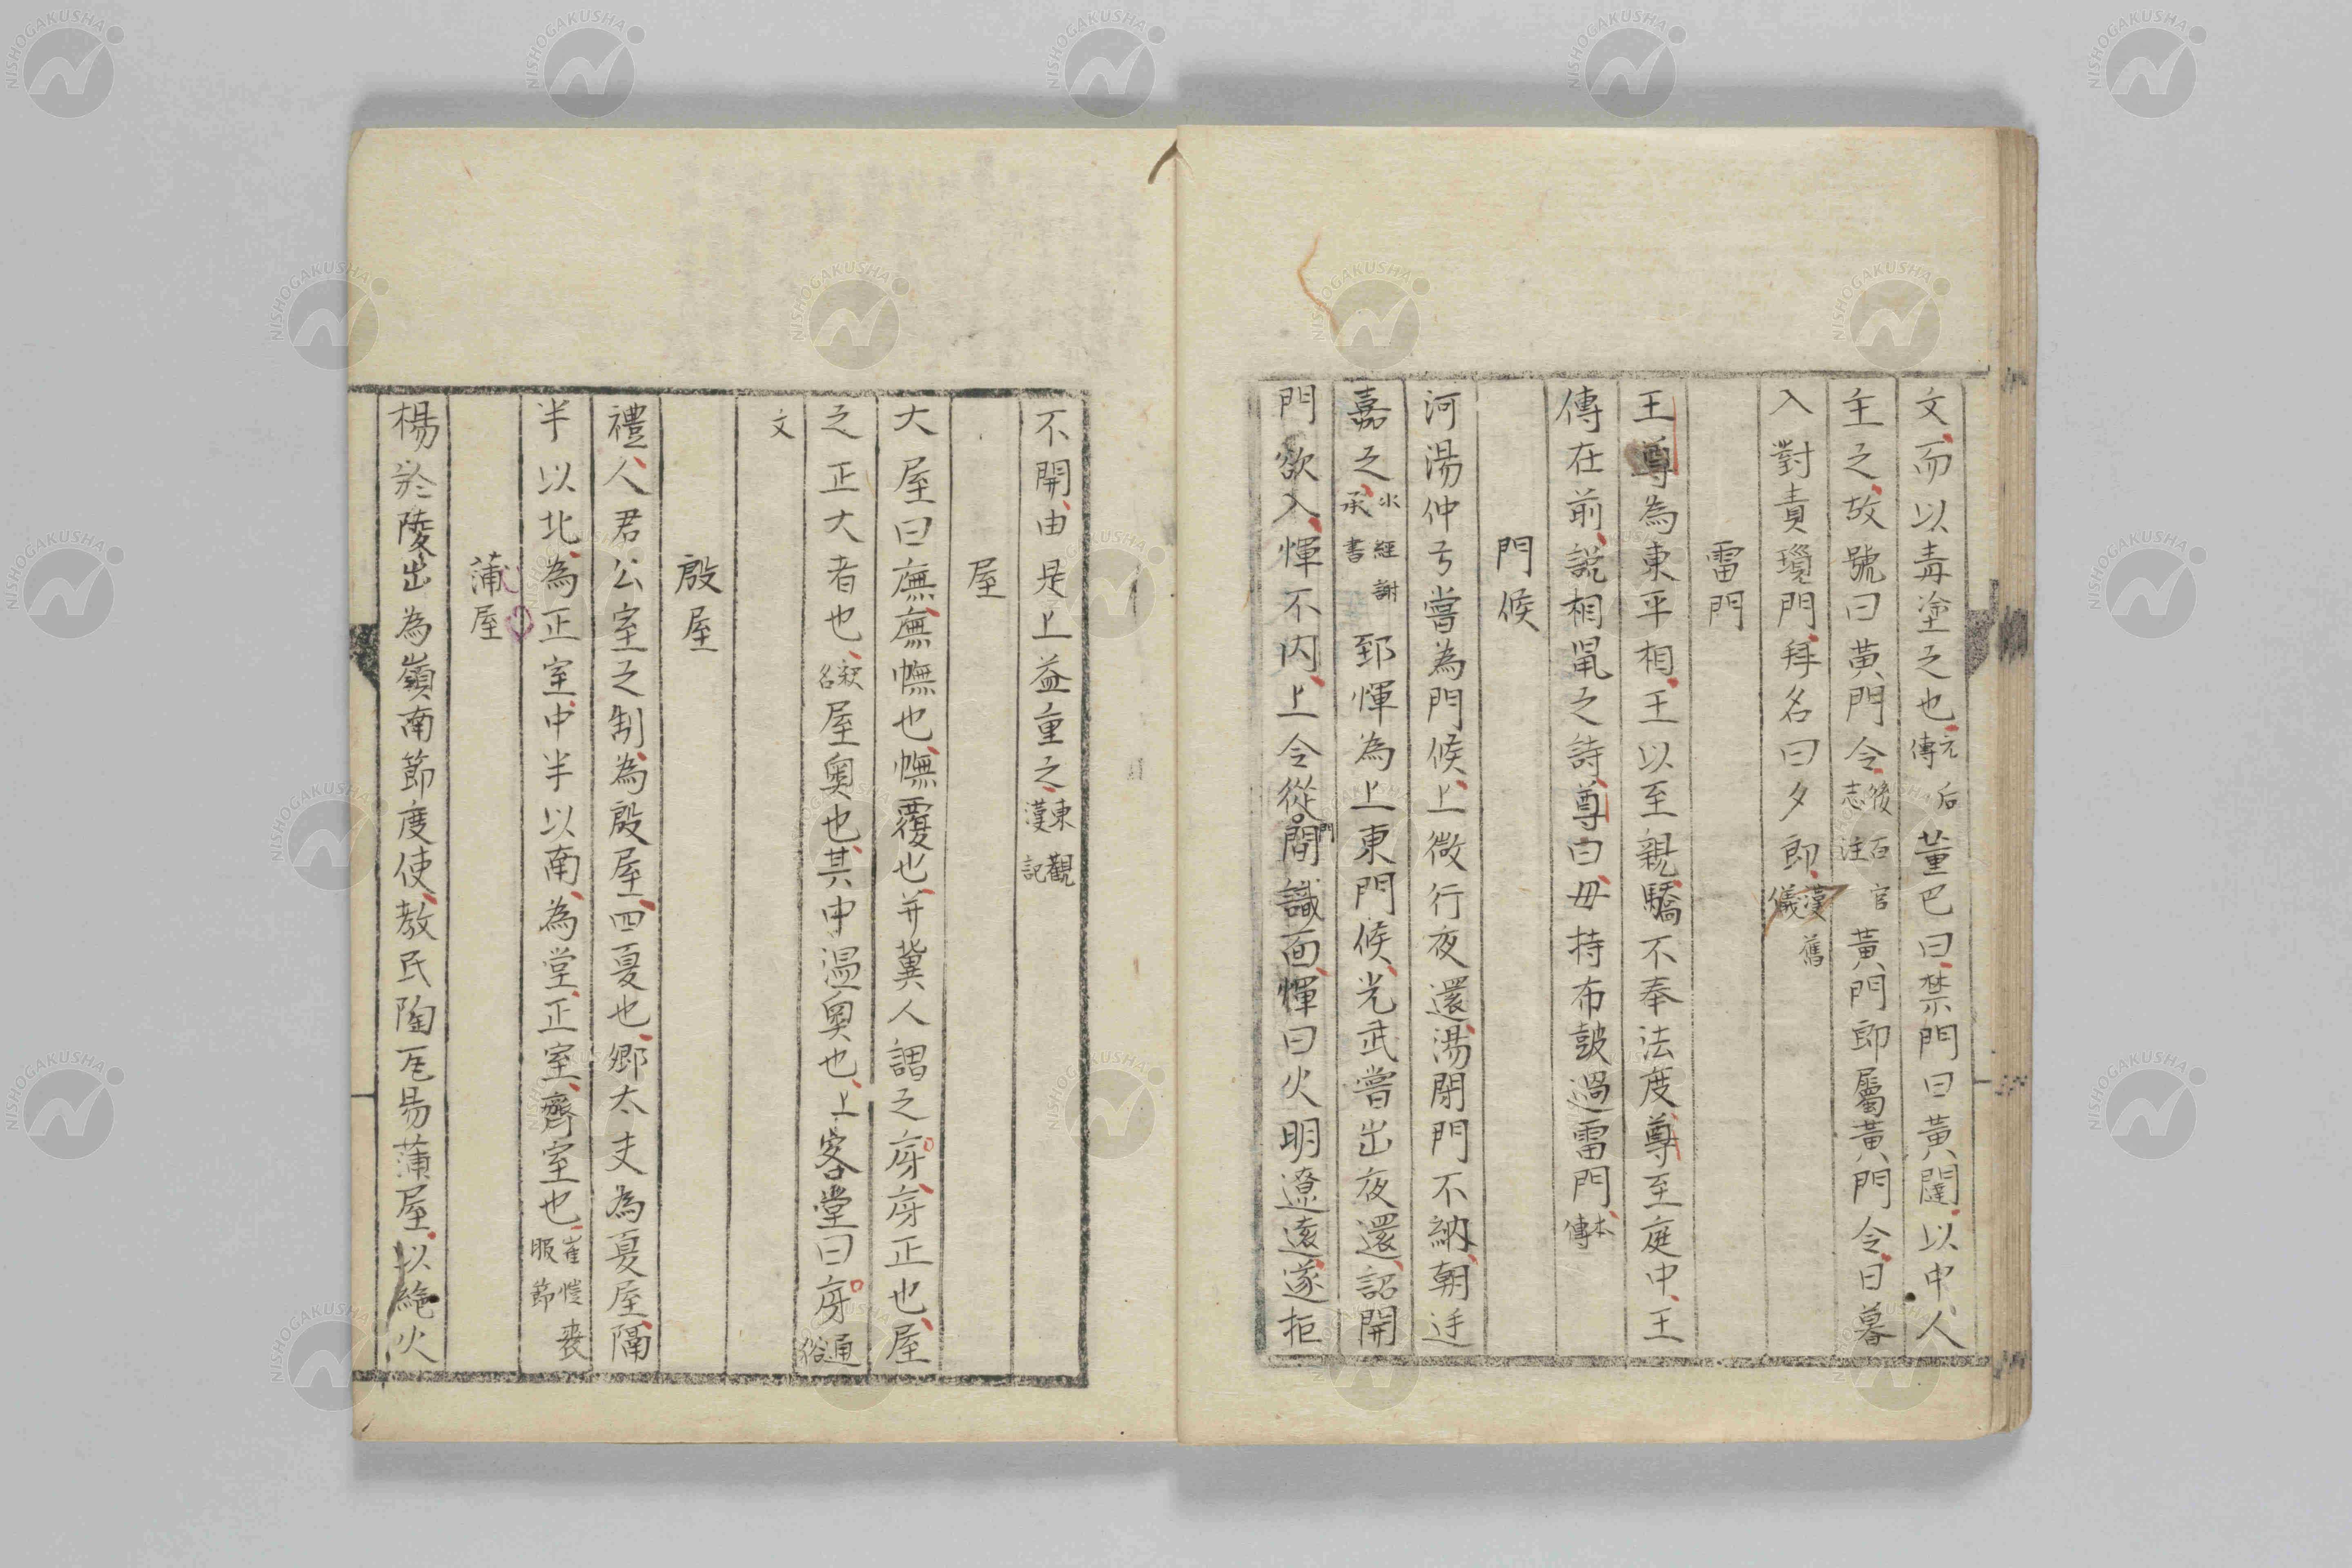 文而以青塗之也元后傳董巴曰禁門曰黃闥以中人
主之故號曰黃門令後百官志注黃門郎屬黃門令日暮
入對責瑣門拜名曰夕郎漢舊儀
雷門
王尊為東平相王以至親驕不奉法度尊至庭中王
傅在前說相鼠之詩尊曰毋持布鼓過雷門本傳
門候
河湯仲弓嘗為門候上微行夜還湯閉門不納朝廷
嘉之水經謝承書郅惲為上東門候光武嘗出夜還詔開
門欲入惲不內上令從門間識面惲曰火明遼遠遂拒
不開由是上益重之東觀漢記
屋
大屋曰廡廡幠也幠覆也并冀人謂之庌庌正也屋
之正大者也釈名屋奧也其中溫奧也上客堂曰庌通俗
文
殷屋
禮人君公室之制為殷屋四夏也鄉太夫為夏屋隔
半以北為正室中半以南為堂正室齊室也崔愷喪服節
蒲屋
楊於陵出為嶺南節度使教民陶瓦易蒲屋以絕火